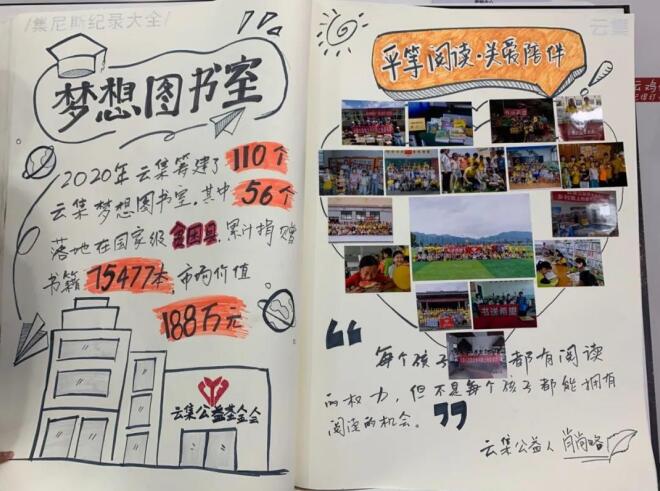 /集尼斯纪录大全/
梦想图书室
2020年云集筹建了110个
云集梦想图书室,其中56个
落地在国家级贫困县,累计捐赠
书籍75477本 市场价值
188万元
云集公益基金会
云集
平等阅读·关爱陪伴
书送希望
“每个孩子都有阅读
的权力,但不是每个孩子都能拥有
阅读的机会。”
云集公益人 肖尚略